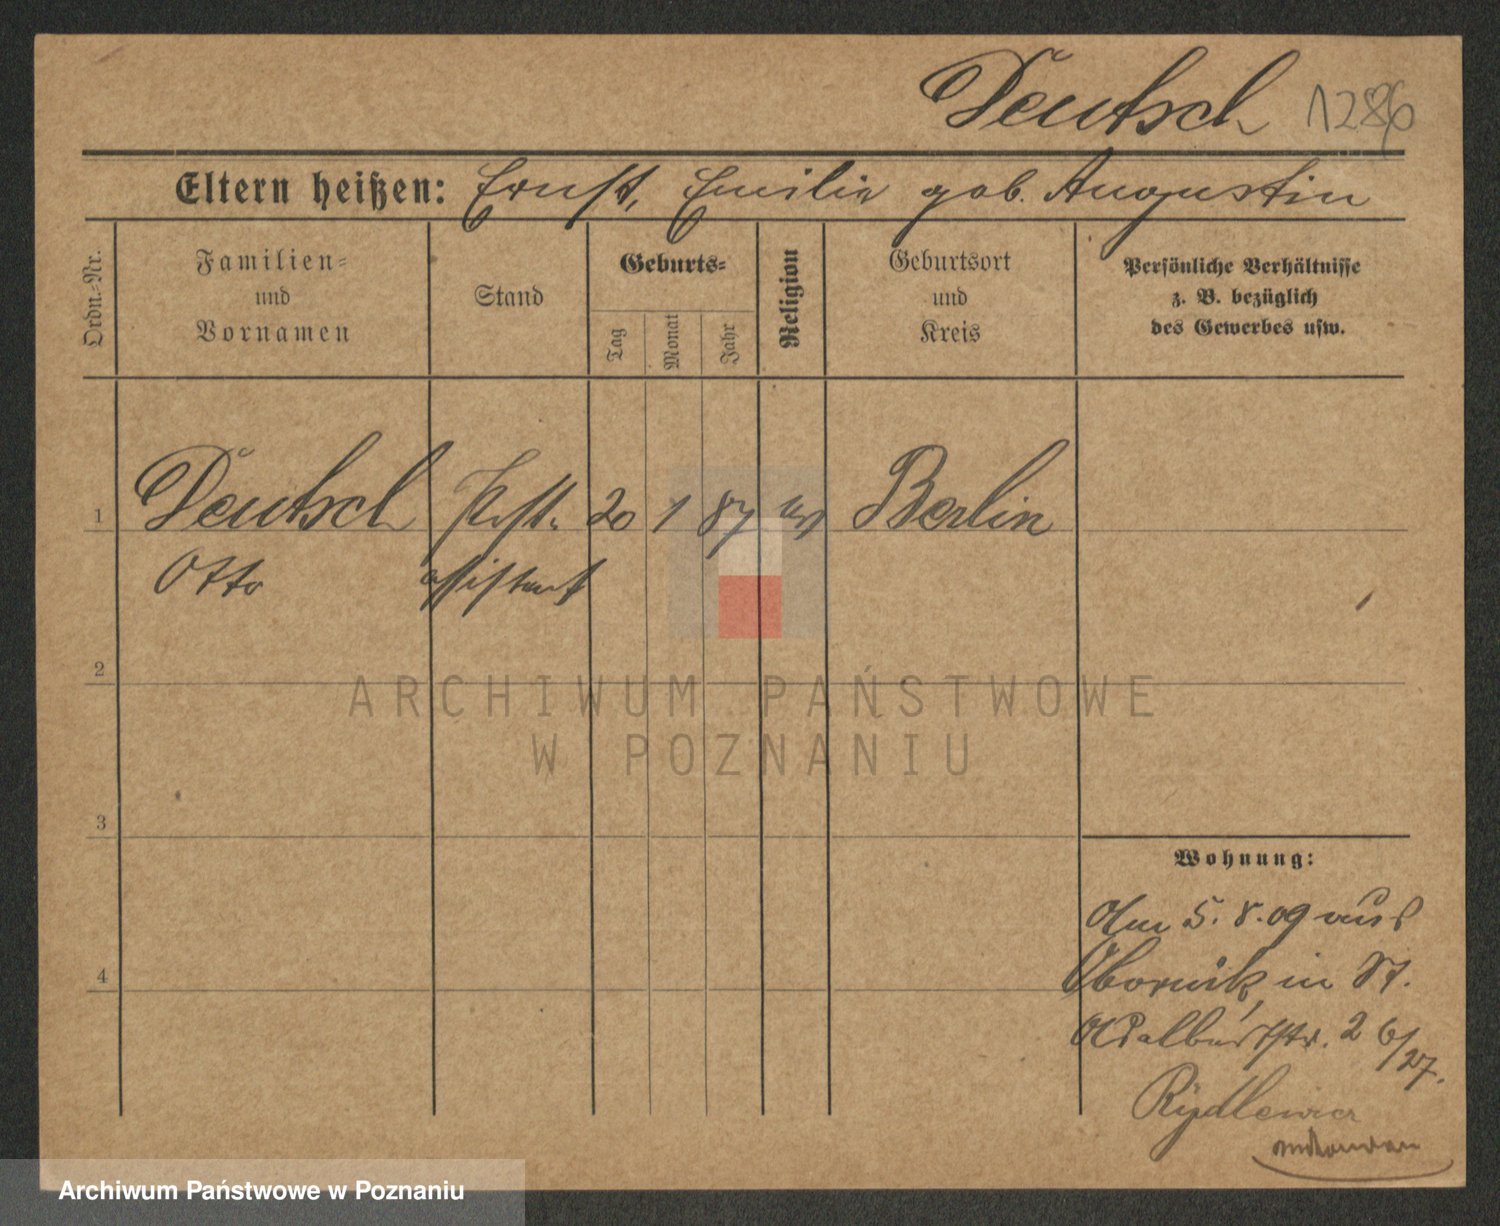 Deutsch 1286
Eltern heißen: Ernst, Emilie geb. Augustin
Ordn.-Nr.
Familien-
und
Vornamen
Stand
Geburts-
Tag
Monat
Jahr
Religion
Geburtsort
und
Kreis
Persönliche Verhältnisse
z. B. bezüglich
des Gewerbes usw.
1 Deutsch Post- 20 1 87 ev Berlin
Otto assistent
2
ARCHIWUM PAŃSTWOWE
W POZNANIU
3
Wohnung:
Am 5. 8. 09 aus
Obornik, in St.
Adalbertstr. 26/27.
4
Archiwum Państwowe w Poznaniu